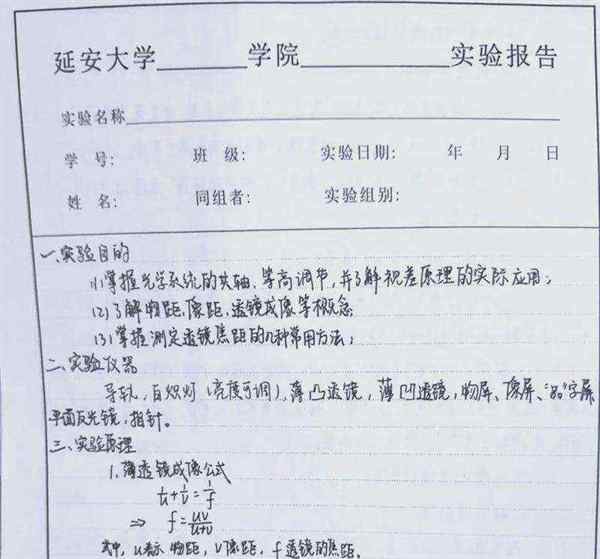 延安大学______学院__________实验报告
实验名称
学 号: 班 级: 实验日期: 年 月 日
姓 名: 同组者: 实验组别:
一、实验目的
(1)掌握光学系统的共轴、等高调节,并了解视差原理的实际应用;
(2)了解物距、像距、透镜成像等概念;
(3)掌握测定透镜焦距的几种常用方法;
二、实验仪器
导轨,白炽灯(亮度可调),薄凸透镜,薄凹透镜,物屏、像屏、“品”字屏
平面反光镜,指针。
三、实验原理
1.薄透镜成像公式
1/u + 1/v = 1/f
⇒ f = uv/u+v
其中,u表示物距,v像距,f透镜的焦距.